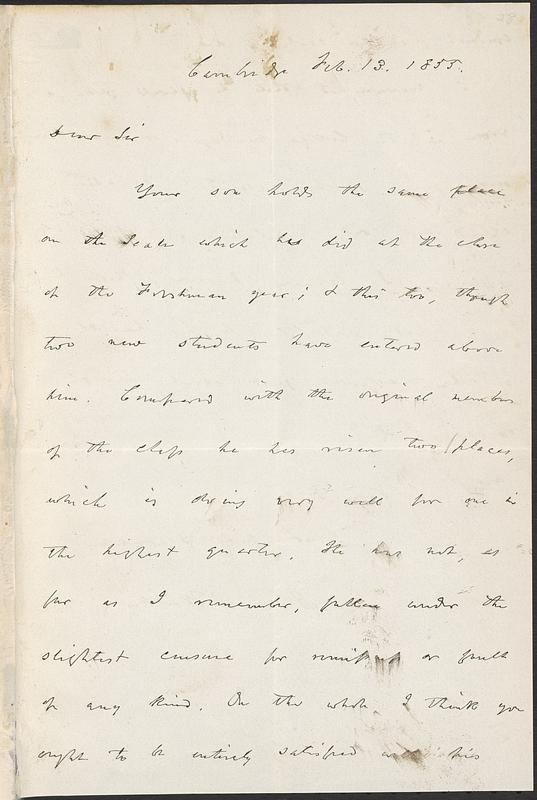 Cambridge Feb. 13. 1855.
Dear Sir
Your son holds the same place
on the Scale which he did at the close
of the Freshman year; & this too, though
two new students have entered above
him. Compared with the original members
of the class he has risen two places,
which is doing very well for one in
the highest quarter. He has not, as
far as I remember, fallen under the
slightest censure for remissness or fault
of any kind. On the whole I think you
ought to be entirely satisfied with his